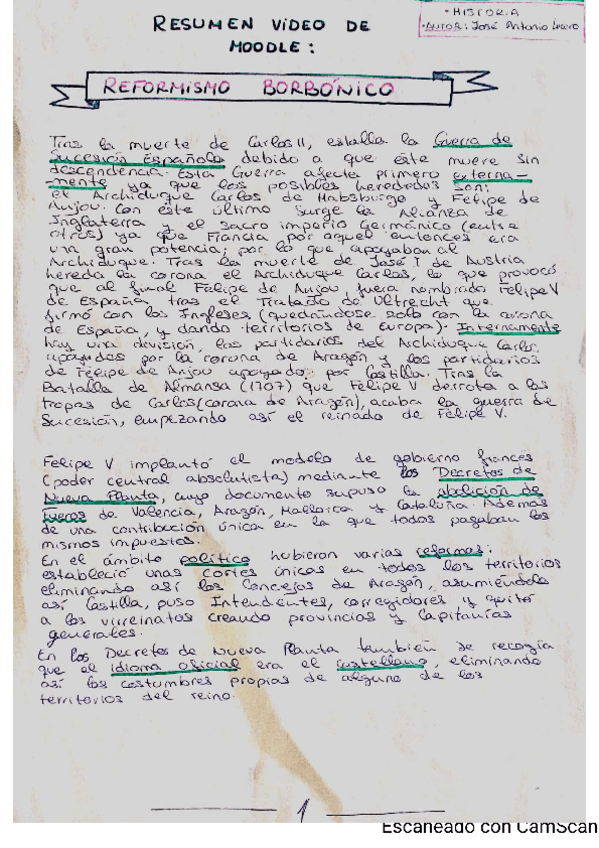 RESUMEN VÍDEO DE
MOODLE:
• HISTORIA
• AUTOR: José Antonio Lucero
REFORMISMO BORBÓNICO
Tras la muerte de Carlos II, estalla la Guerra de
Sucesión Española debido a que éste muere sin
descendencia. Esta Guerra afecta primero externa-
mente ya que los posibles herederos son:
el Archiduque Carlos de Habsburgo y Felipe de
Anjou. Con este último surge la Alianza de
Inglaterra y el Sacro imperio Germánico (entre
otros) ya que Francia por aquel entonces era
una gran potencia; por lo que apoyaban al
Archiduque. Tras la muerte de José I de Austria
hereda la corona el Archiduque Carlos, lo que provocó
que al final Felipe de Anjou, fuera nombrado Felipe V
de España tras el Tratado de Ultrecht que
firmó con los Ingleses (quedándose solo con la corona
de España, y dando territorios de Europa). Internamente
hay una división los partidarios del Archiduque Carlos
apoyados por la corona de Aragón y los partidarios
de Felipe de Anjou apoyado por Castilla. Tras la
Batalla de Almansa (1707) que Felipe V derrota a las
tropas de Carlos (corona de Aragón), acaba la guerra de
Sucesión, empezando así el reinado de Felipe V.
Felipe V implantó el modelo de gobierno frances
(poder central absolutista) mediante los Decretos de
Nueva Planta, cuyo documento supuso la abolición de
fueros de Valencia, Aragón, Mallorca y Cataluña. Además
de una contribución única en la que todos pagaban los
mismos impuestos.
En el ámbito político hubieron varias reformas:
estableció unas cortes únicas en todos los territorios
eliminando así los Concejos de Aragón, asumiéndolo
así Castilla, puso Intendentes, corregidores y quitó
a los virreinatos creando provincias y Capitanías
generales.
En los Decretos de Nueva Planta también se recogía
que el idioma oficial era el castellano, eliminando
así las costumbres propias de alguno de los
territorios del reino.
1
Escaneado con CamScan